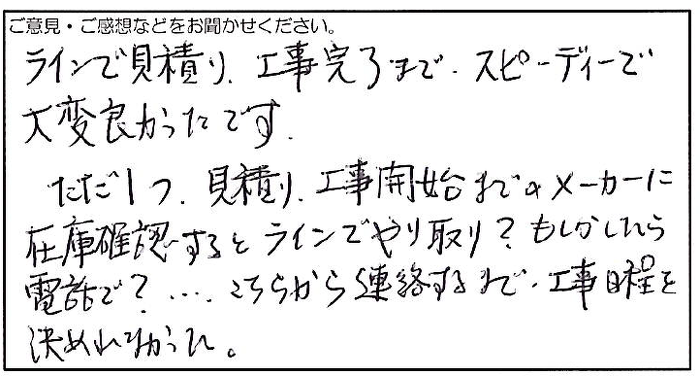 ご意見・ご感想などをお聞かせください。
ラインで見積り、工事完了まで、スピーディーで
大変良かったです。
ただ1つ、見積り、工事開始までのメーカーに
在庫確認するとラインでやり取り？もしかしたら
電話で？…、こちらから連絡するまで、工事日程を
決めれなかった。